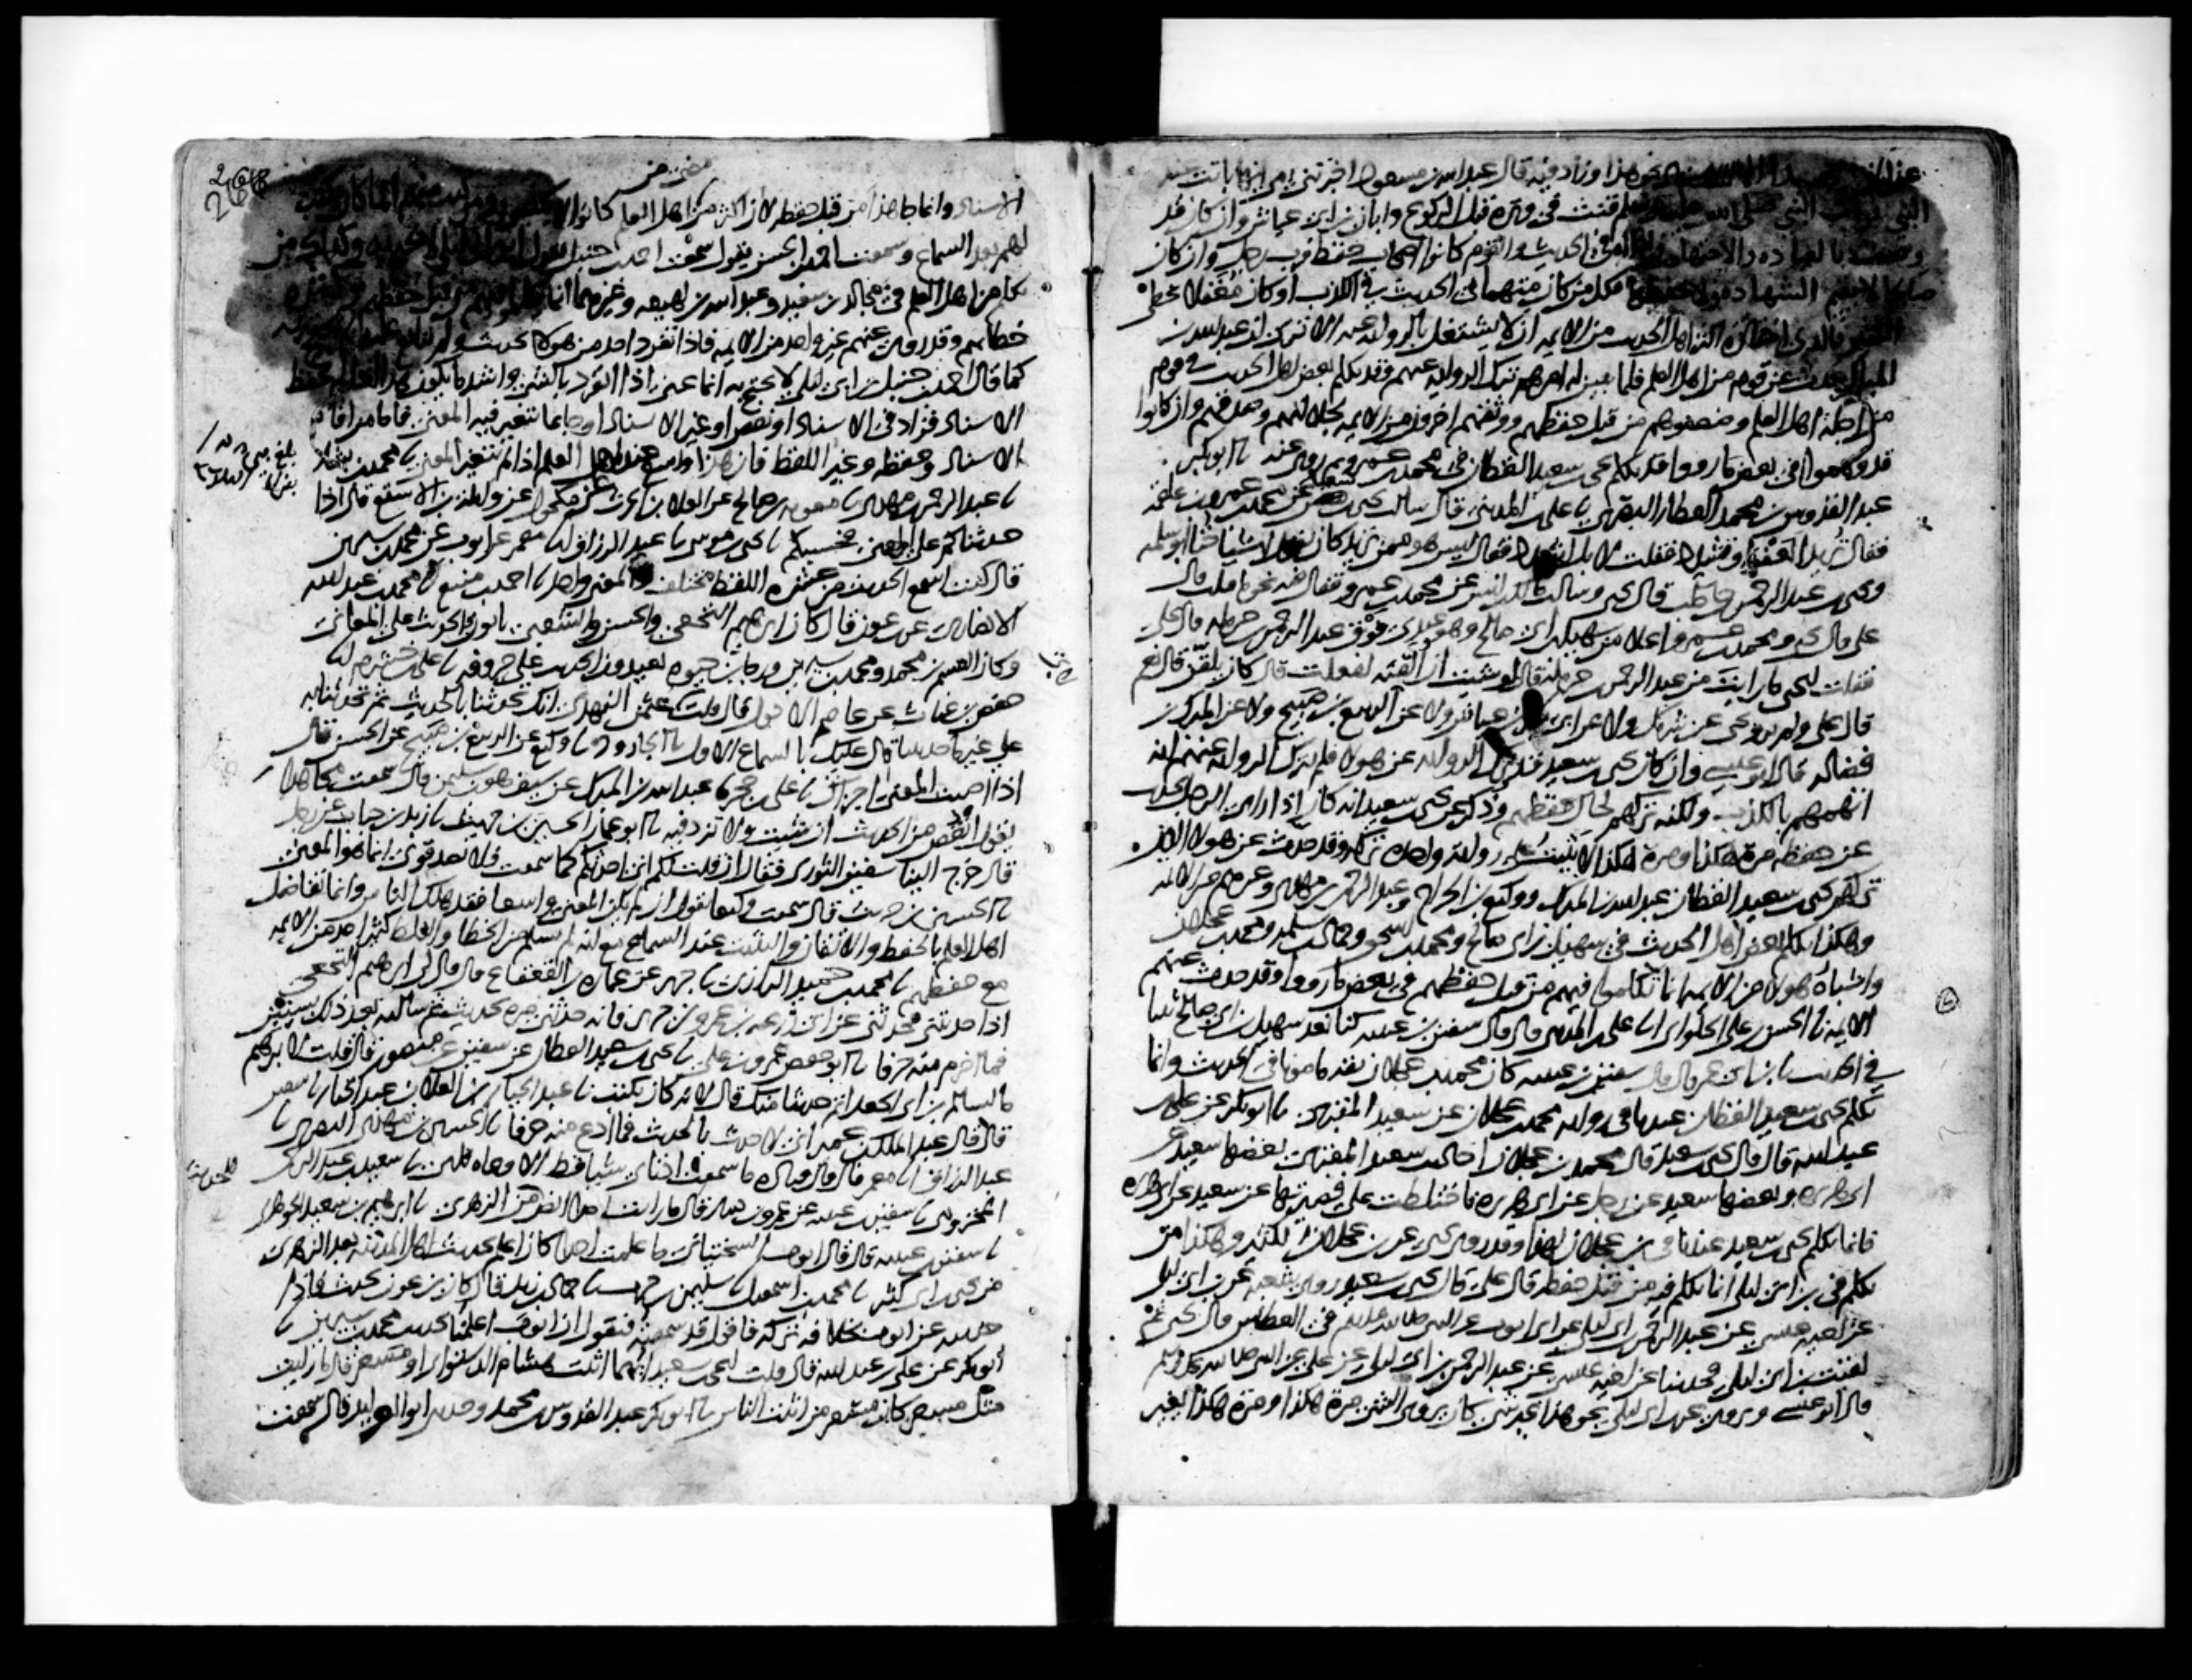 النبي صلى الله عليه وسلم قنت في وتره قبل الركوع وابان بن ابي عياش وان كان قد
وصف بالعباده والاجتهاد فهذا حاله في الحديث والقوم كانوا اصحاب حفظ فرب رجل وان كان
صالحا لا يقيم الشهاده ولا يحفظها فكل من كان متهما في الحديث في الكذب او كان مغفلا يخطى
الكثير فالذي اختاره اكثر اهل الحديث من الايمه ان لا يشتغل بالروايه عنه الا ترى ان عبدالله بن
المبارك حدث عن قوم من اهل العلم فلما تبين له امرهم ترك الروايه عنهم وقد تكلم بعض اهل الحديث في قوم
من اجلة اهل العلم وضعفوهم من قبل حفظهم ووثقهم اخرون من الايمه بجلالتهم وصدقهم وان كانوا
قد وهموا في بعض ما رووا وقد تكلم يحيى بن سعيد القطان في محمد بن عمرو ثم روى عنه ثا ابو بكر
عبد القدوس بن محمد العطار البصري ثا علي بن المديني قال سالت يحيى بن سعيد عن محمد بن عمرو بن علقمه
فقال تريد العفو او تشدد فقلت لا بل اشدد فقال ليس هو ممن تريد كان يقول اشياخنا ابو سلمه
ويحيى بن عبد الرحمن بن حاطب قال يحيى وسالت مالك بن انس عن محمد بن عمرو فقال فيه نحو ما قلت قال
علي قال يحيى ومحمد بن عمرو اعلا من سهيل بن ابي صالح وهو عندي فوق عبد الرحمن بن حرمله قال علي
فقلت ليحيى ما رايت من عبد الرحمن بن حرمله قال لو شيت ان القنه لفعلت قال كان يلقن قال نعم
قال علي ولم يرو يحيى عن شريك ولا عن ابي بكر بن عياش ولا عن الربيع بن صبيح ولا عن المبارك بن
فضاله قال ابو عيسى وان كان يحيى بن سعيد قد ترك الروايه عن هولا فلم يترك الروايه عنهم انه
اتهمهم بالكذب ولكنه تركهم لحال حفظهم وذكر عن يحيى بن سعيد انه كان اذا راى الرجل يحدث
عن حفظه مرة هكذا ومرة هكذا لا يثبت على روايه واحده تركه وقد حدث عن هولا الذين
تركهم يحيى بن سعيد القطان عبد الله بن المبارك ووكيع بن الجراح وعبد الرحمن بن مهدي وغيرهم من الايمه
وهكذا تكلم بعض اهل الحديث في سهيل بن ابي صالح ومحمد بن اسحق وحماد بن سلمه ومحمد بن عجلان
واشباه هولا من الايمه انما تكلموا فيهم من قبل حفظهم في بعض ما رووا وقد حدث عنهم
الايمه ثا الحسن بن علي الحلواني انا علي بن المديني قال قال سفين بن عيينه كنا نعد سهيل بن ابي صالح ثبتا
في الحديث ثا ابن ابي عمر قال قال سفين بن عيينه كان محمد بن عجلان ثقه مامونا في الحديث وانما
تكلم يحيى بن سعيد القطان عندنا في روايه محمد بن عجلان عن سعيد المقبري ثا ابو بكر عن علي بن
عبد الله قال قال يحيى بن سعيد قال محمد بن عجلان احاديث سعيد المقبري بعضها سعيد عن
ابي هريره وبعضها سعيد عن رجل عن ابي هريره فاختلطت علي فصيرتها عن سعيد عن ابي هريره
فانما تكلم يحيى بن سعيد عندنا في بن عجلان لهذا وقد روى يحيى عن بن عجلان الكثير وهكذا من
تكلم في بن ابي ليلى انما تكلم فيه من قبل حفظه قال علي قال يحيى بن سعيد روى شعبه عن بن ابي ليلى
عن اخيه عيسى عن عبد الرحمن بن ابي ليلى عن ابي ايوب عن النبي صلى الله عليه وسلم في العطاس قال يحيى ثم
لقيت بن ابي ليلى فحدثنا عن اخيه عيسى عن عبد الرحمن بن ابي ليلى عن علي عن النبي صلى الله عليه وسلم
قال ابو عيسى ويروى عن بن ابي ليلى نحو هذا غير شي كان يروي الشي مرة هكذا ومرة هكذا يغير
الاسناد وانما جا هذا من قبل حفظه لان اكثر من مضى من اهل العلم كانوا لا يكتبون ومن كتب منهم انما كان يكتب
لهم بعد السماع وسمعت احمد بن الحسن يقول سمعت احمد بن حنبل يقول
تكلم من اهل العلم في مجالد بن سعيد وعبد الله بن لهيعه وغيرهما انما تكلموا فيهم من قبل حفظهم وكثره
خطاهم وقد روى عنهم غير واحد من الايمه فاذا تفرد احد من هولا بحديث ولم يتابع عليه لم يحتج به
كما قال احمد بن حنبل بن ابي ليلى لا يحتج به انما عنى اذا تفرد بالشي واشد ما يكون هذا اذا لم يحفظ
الاسناد فزاد في الاسناد او نقص او غير الاسناد او جا بما يتغير فيه المعنى فاما من اقام
الاسناد وحفظه وغير اللفظ فان هذا واسع عند اهل العلم اذا لم يتغير المعنى ثا محمد بن بشار
ثا عبد الرحمن بن مهدي ثا معويه بن صالح عن العلا بن الحرث عن مكحول عن واثله بن الاسقع قال اذا
حدثناكم على المعنى فحسبكم ثا يحيى بن موسى ثا عبد الرزاق انا معمر عن ايوب عن محمد بن سيرين
قال كنت اسمع الحديث من عشره اللفظ مختلف والمعنى واحد ثا احمد بن منيع ثا محمد بن عبد الله
الانصاري عن بن عون قال كان ابرهيم النخعي والحسن والشعبي ياتون بالحديث على المعاني
وكان القسم بن محمد ومحمد بن سيرين ورجا بن حيوه يعيدون الحديث على حروفه ثا علي بن خشرم انا
حفص بن غياث عن عاصم الاحول قال قلت لابي عثمن النهدي انك تحدثنا بالحديث ثم تحدثنا به
على غير ما حدثتنا قال عليك بالسماع الاول ثا الجارود ثا وكيع عن الربيع بن صبيح عن الحسن قال
اذا اصبت المعنى اجزاك ثا علي بن حجر ثا عبد الله بن المبارك عن سيف هو بن سليمن قال سمعت مجاهدا
يقول انقص من الحديث ان شيت ولا تزد فيه ثا ابو عمار الحسين بن حريث ثا زيد بن حباب عن رجل
قال خرج الينا سفين الثوري فقال ان قلت لكم اني احدثكم كما سمعت فلا تصدقوني انما هو المعنى
ثا الحسين بن حريث قال سمعت وكيعا يقول ان لم يكن المعنى واسعا فقد هلك الناس وانما تفاضل
اهل العلم بالحفظ والاتقان والتثبت عند السماع مع انه لم يسلم من الخطا والغلط كثير احد من الايمه
مع حفظهم ثا محمد بن حميد الرازي ثا جرير عن عماره بن القعقاع قال قال لي ابرهيم النخعي
اذا حدثتني فحدثني عن ابي زرعه بن عمرو بن جرير فانه حدثني مره بحديث ثم سالته بعد ذلك بسنتين
فما اخرم منه حرفا ثا ابو حفص عمرو بن علي ثا يحيى بن سعيد القطان عن سفين عن منصور قال قلت لابرهيم
ما لسالم بن ابي الجعد اتم حديثا منك قال لانه كان يكتب ثا عبد الجبار بن العلا بن عبد الجبار ثا سفين
قال قال عبد الملك بن عمير اني لاحدث بالحديث فما ادع منه حرفا ثا الحسين بن مهدي البصري ثا
عبد الرزاق انا معمر قال قال قتاده ما سمعت اذناي شيا قط الا وعاه قلبي ثا سعيد بن عبد الرحمن
المخزومي ثا سفين بن عيينه عن عمرو بن دينار قال ما رايت احدا انص للحديث من الزهري ثا ابرهيم بن سعيد الجوهري
ثا سفين بن عيينه قال قال ايوب السختياني ما علمت احدا كان اعلم بحديث اهل المدينه بعد الزهري
من يحيى بن ابي كثير ثا محمد بن اسمعيل ثا سليمن بن حرب ثا حماد بن زيد قال كان بن عون يحدث فاذا
حدثته عن ايوب بخلافه تركه فاقول قد سمعته فيقول ان ايوب اعلمنا بحديث محمد بن سيرين ثا
ابو بكر عن علي بن عبد الله قال قلت ليحيى بن سعيد ايهما اثبت هشام الدستوائي او مسعر قال ما رايت
مثل مسعر كان مسعر من اثبت الناس ثا ابو بكر عبد القدوس بن محمد وحدثني ابو الوليد قال سمعت